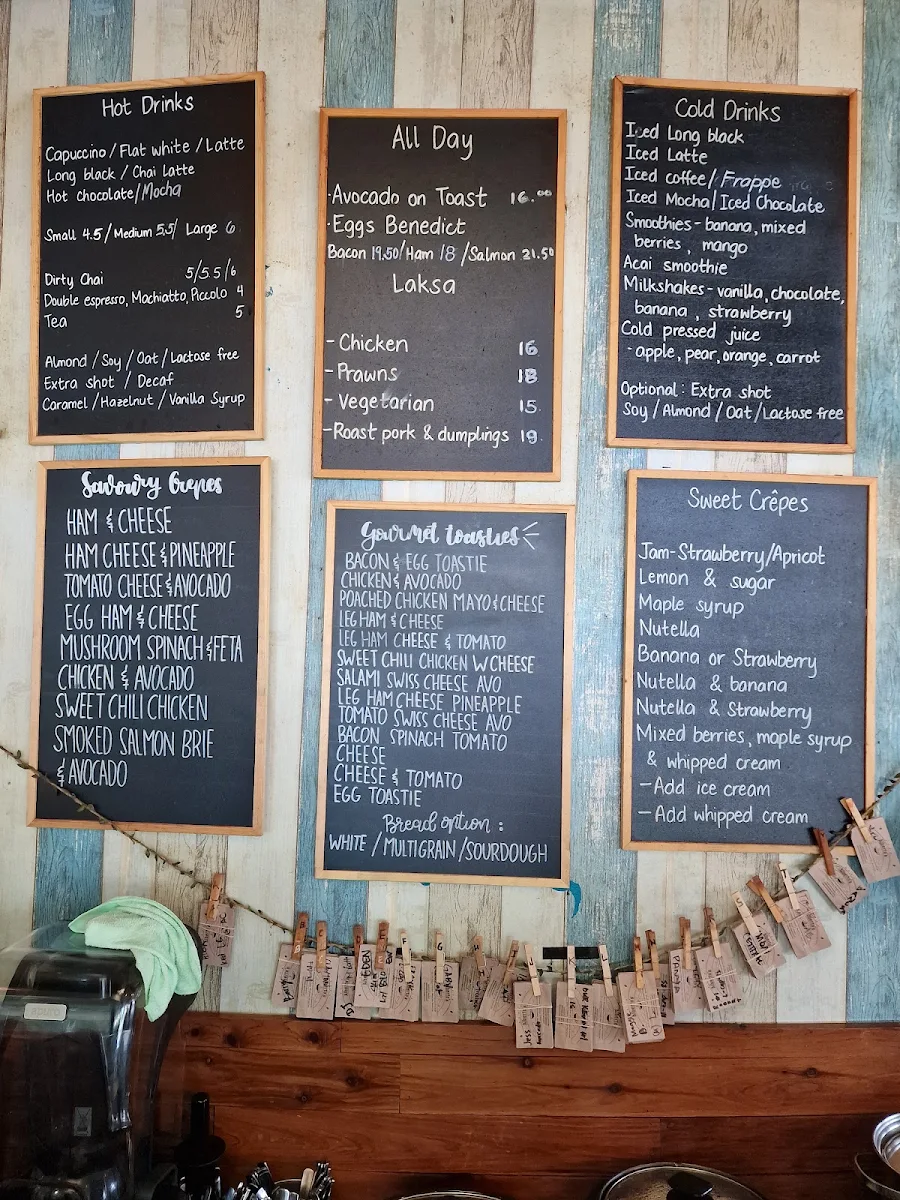 Hot Drinks
Capuccino / Flat white / Latte
Long black / Chai Latte
Hot chocolate / Mocha
Small 4.5 / Medium 5.5 / Large 6
Dirty Chai 5 / 5.5 / 6
Double espresso, Machiatto, Piccolo 4
Tea 5
Almond / Soy / Oat / Lactose free
Extra shot / Decaf
Caramel / Hazelnut / Vanilla Syrup
All Day
·Avocado on Toast 16.00
·Eggs Benedict
Bacon 19.50/Ham 18 /Salmon 21.50
Laksa
- Chicken 16
- Prawns 18
- Vegetarian 15.
-Roast pork & dumplings 19.
Cold Drinks
Iced Long black
Iced Latte
Iced coffee / Frappe
Iced Mocha / Iced Chocolate
Smoothies - banana, mixed
berries, mango
Acai smoothie
Milkshakes - vanilla, chocolate,
banana, strawberry
Cold pressed juice
- apple, pear, orange, carrot
Optional : Extra shot
Soy / Almond / Oat / Lactose free
Savoury Crepes
HAM & CHEESE
HAM CHEESE & PINEAPPLE
TOMATO CHEESE & AVOCADO
EGG HAM & CHEESE
MUSHROOM SPINACH & FETA
CHICKEN & AVOCADO
SWEET CHILI CHICKEN
SMOKED SALMON BRIE
& AVOCADO
Gourmet toasties
BACON & EGG TOASTIE
CHICKEN & AVOCADO
POACHED CHICKEN MAYO & CHEESE
LEG HAM & CHEESE
LEG HAM CHEESE & TOMATO
SWEET CHILI CHICKEN W CHEESE
SALAMI SWISS CHEESE AVO
LEG HAM CHEESE PINEAPPLE
TOMATO SWISS CHEESE AVO
BACON SPINACH TOMATO
CHEESE
CHEESE & TOMATO
EGG TOASTIE
Bread option :
WHITE / MULTIGRAIN / SOURDOUGH
Sweet Crêpes
Jam-Strawberry/Apricot
Lemon & sugar
Maple syrup
Nutella
Banana or Strawberry
Nutella & banana
Nutella & Strawberry
Mixed berries, maple syrup
& whipped cream
-Add ice cream
-Add whipped cream